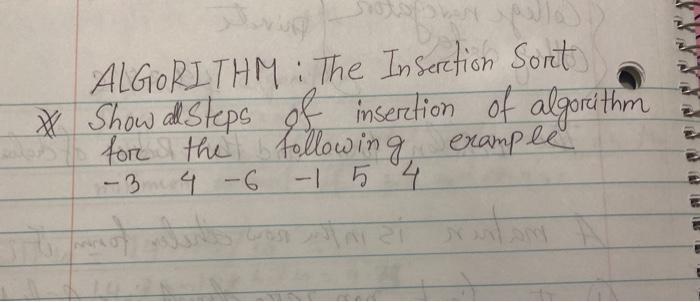 ALGORITHM : The Insertion Sort
* Show all steps of insertion of algorithm
for the following example
-3 4 -6 -1 5 4